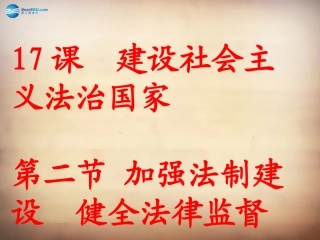 17 课 建设社会主
义法治国家
第二节 加强法制建
设 健全法律监督